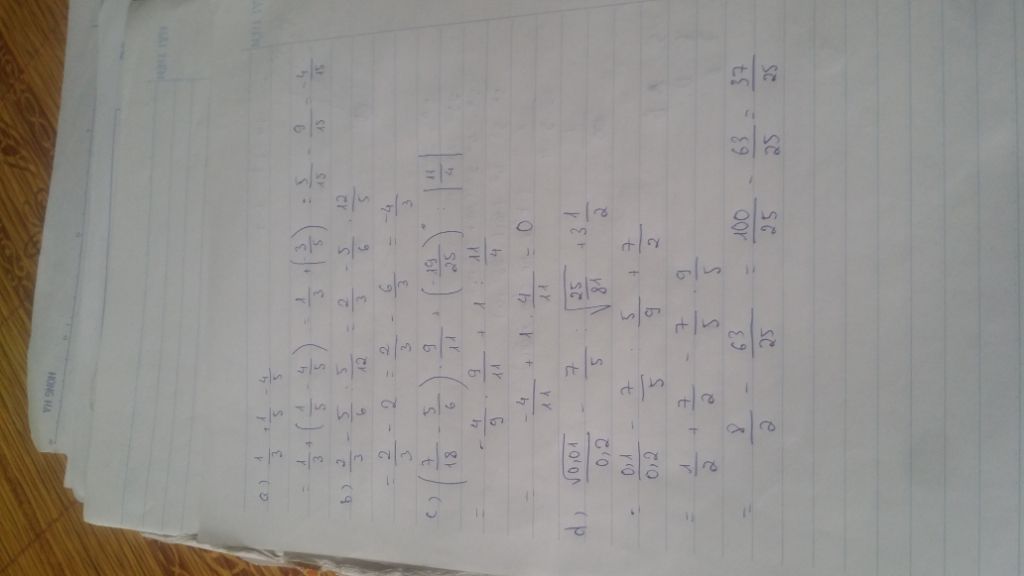 HONG HA
a) 1/3 + 1/5 - 4/5
= 1/3 + (1/5 - 4/5) = 1/3 + (-3/5) = 5/15 - 9/15 = -4/15
b) 2/3 - 5/6 : 5/12 = 2/3 - 5/6 . 12/5
= 2/3 - 2 = 2/3 - 6/3 = -4/3
c) (7/18 - 5/6) . 9/11 + (-19/25)⁰ : |11/4|
= -4/9 . 9/11 + 1 : 11/4
= -4/11 + 1 . 4/11 = 0
d) √0,01/0,2 - 7/5 : √25/81 + 3 1/2
= 0,1/0,2 - 7/5 : 5/9 + 7/2
= 1/2 + 7/2 - 7/5 . 9/5
= 8/2 - 63/25 = 100/25 - 63/25 = 37/25